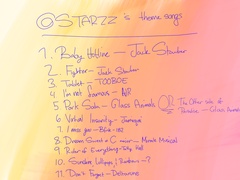 @STARZZ's theme songs
1. Baby Hotline — Jack Stauber
2. Fighter — Jack Stauber
3. Tablet — TOOBOE
4. I'm not famous — AJR
5. Pork Soda — Glass Animals OR The Other side of Paradise — Glass Animals
6. Virtual Insanity — Jamiroquai
7. I miss you — Blink-182
8. Dream Sweet in C major — Miracle Musical
9. Ruler of Everything — Tally Hall
10. Sundress, Lollipops, &
11. Don't Forget — Deltarune